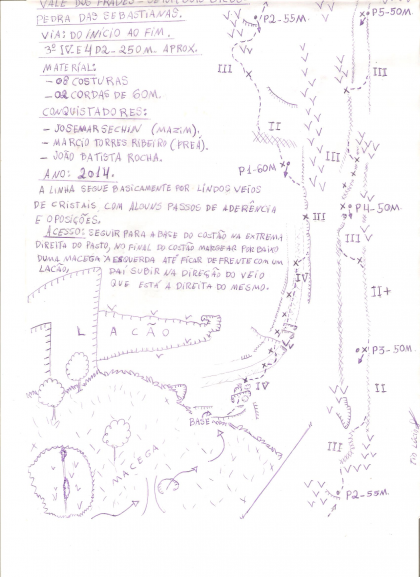 VALE DOS FRADES -
PEDRA DAS SEBASTIANAS.
VIA: DO INÍCIO AO FIM.
3º IV E4 D2 - 250M. APROX.
MATERIAL:
- 08 COSTURAS
- 02 CORDAS DE 60M.
CONQUISTADORES:
- JOSEMAR SECHIN (MAZIM).
- MARCIO TORRES RIBEIRO (PREÁ).
- JOÃO BATISTA ROCHA.
ANO: 2014.
A LINHA SEGUE BASICAMENTE POR LINDOS VEIOS
DE CRISTAIS, COM ALGUNS PASSOS DE ADERÊNCIA
E OPOSIÇÕES.
ACESSO: SEGUIR PARA A BASE DO COSTÃO NA EXTREMA
DIREITA DO PASTO, NO FINAL DO COSTÃO MARGEAR POR BAIXO
DUMA MACEGA À ESQUERDA ATÉ FICAR DE FRENTE COM UM
LACÃO, DAÍ SUBIR NA DIREÇÃO DO VEIO
QUE ESTÁ À DIREITA DO MESMO.
LACÃO
MACEGA
BASE
IV
IV
III
P1-60M
II
III
P2-55M.
P2-55M.
III
II
P3-50M
II+
III
P4-50M
III
III
P5-50M